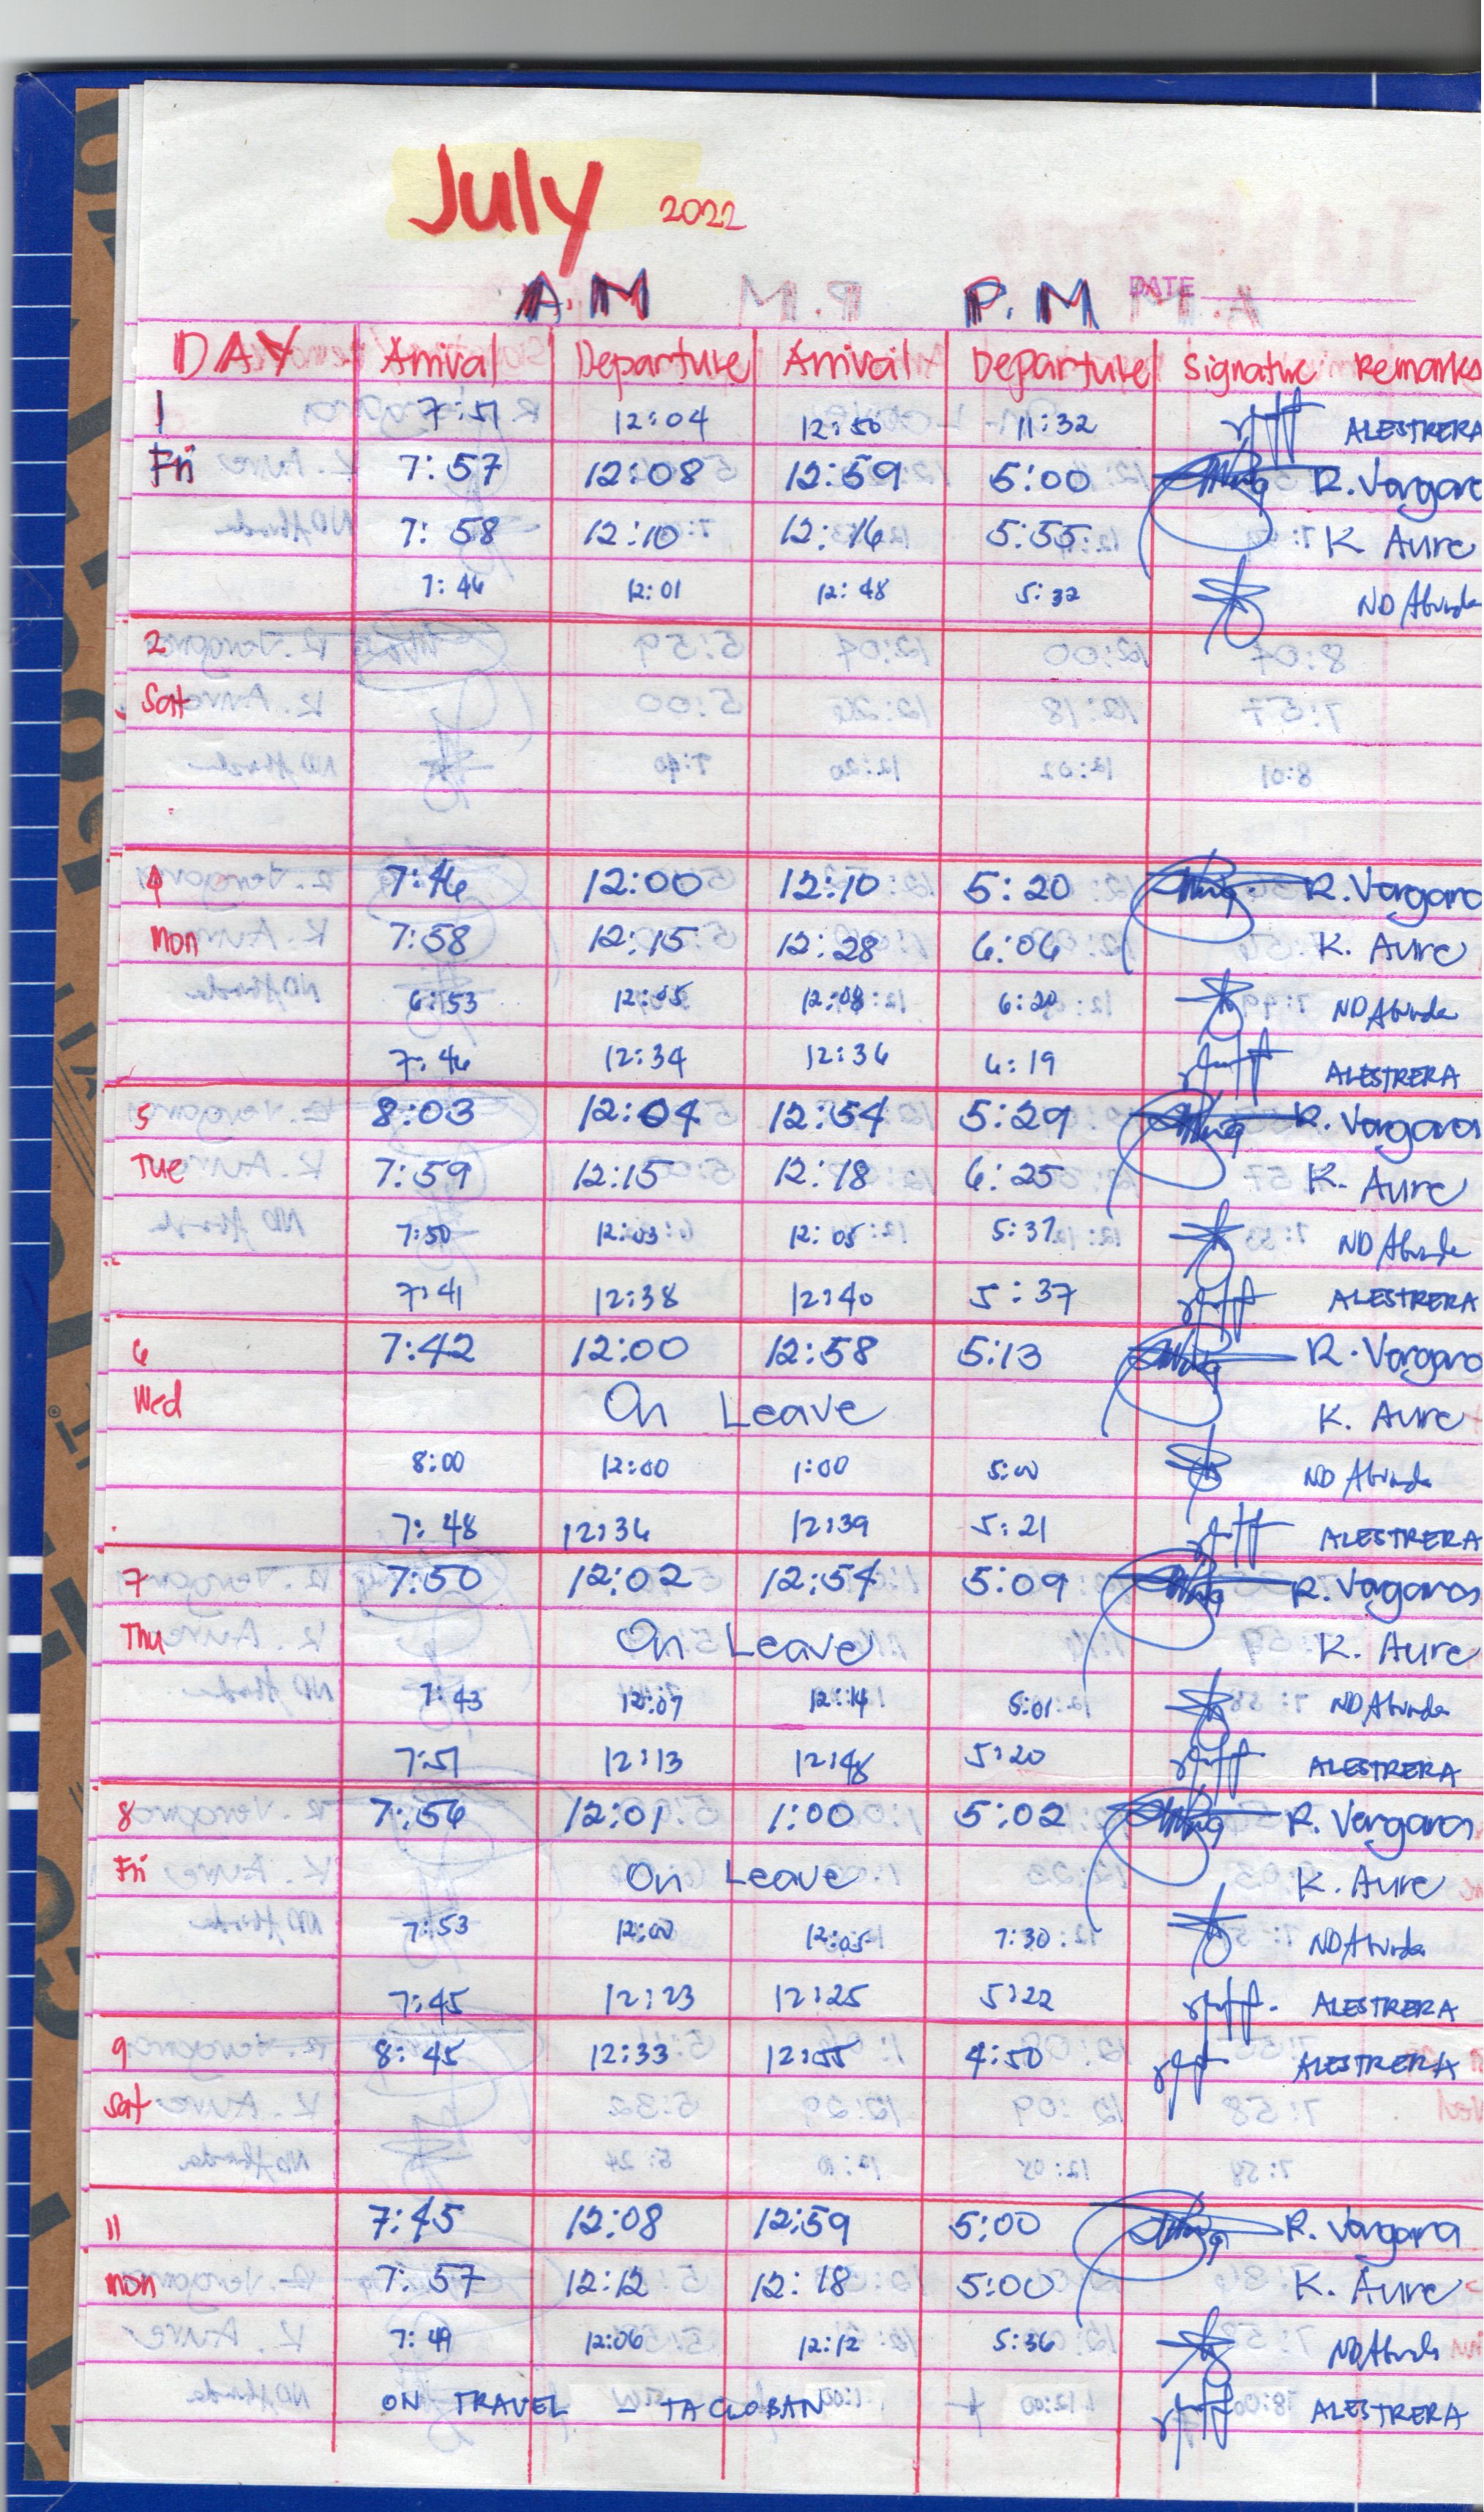 July 2022
A.M P.M DATE
DAY Arrival Departure Arrival Departure Signature Remarks
1 7:51 12:04 12:50 11:32 ALESTRERA
Fri 7:57 12:08 12:59 5:00 R. Vergara
7:58 12:10 12:16 5:55 K Aure
7:46 12:01 12:48 5:32 ND Abuda
2
Sat
4 7:46 12:00 12:10 5:20 R. Vergara
Mon 7:58 12:15 12:28 6:06 K. Aure
6:53 12:05 12:08 6:20 ND Abuda
7:46 12:34 12:36 6:19 ALESTRERA
5 8:03 12:04 12:54 5:29 R. Vergara
Tue 7:59 12:15 12:18 6:25 K. Aure
7:50 12:03 12:05 5:37 ND Abuda
7:41 12:38 12:40 5:37 ALESTRERA
6 7:42 12:00 12:58 5:13 R. Vergara
Wed On Leave K. Aure
8:00 12:00 1:00 5:00 ND Abuda
7:48 12:36 12:39 5:21 ALESTRERA
7 7:50 12:02 12:54 5:09 R. Vergara
Thu On Leave K. Aure
7:43 12:07 12:14 5:01 ND Abuda
7:51 12:13 12:48 5:20 ALESTRERA
8 7:56 12:01 1:00 5:02 R. Vergara
Fri On Leave K. Aure
7:53 12:00 12:05 7:30 ND Abuda
7:45 12:23 12:25 5:22 ALESTRERA
9 8:45 12:33 12:55 4:50 ALESTRERA
Sat
11 7:45 12:08 12:59 5:00 R. Vergara
mon 7:57 12:12 12:18 5:00 K. Aure
7:49 12:06 12:12 5:36 ND Abuda
ON TRAVEL - TACLOBAN ALESTRERA